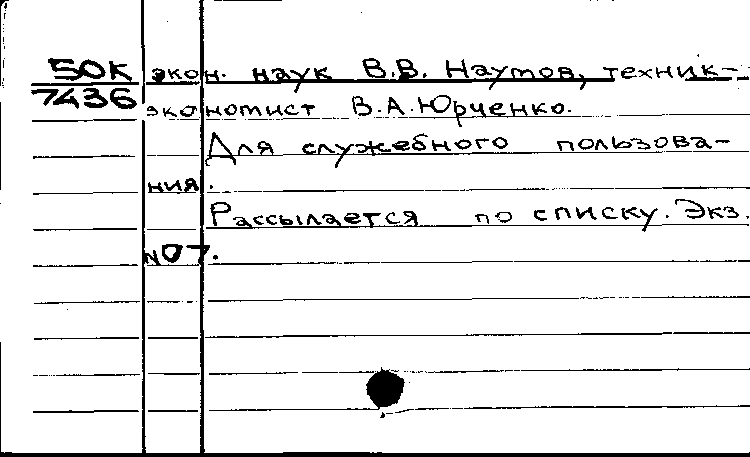 50К экон. наук В.В. Наумов, техник-
7436 экономист В.А. Юрченко.
Для служебного пользова-
ния.
Рассылается по списку. Экз.
№07.